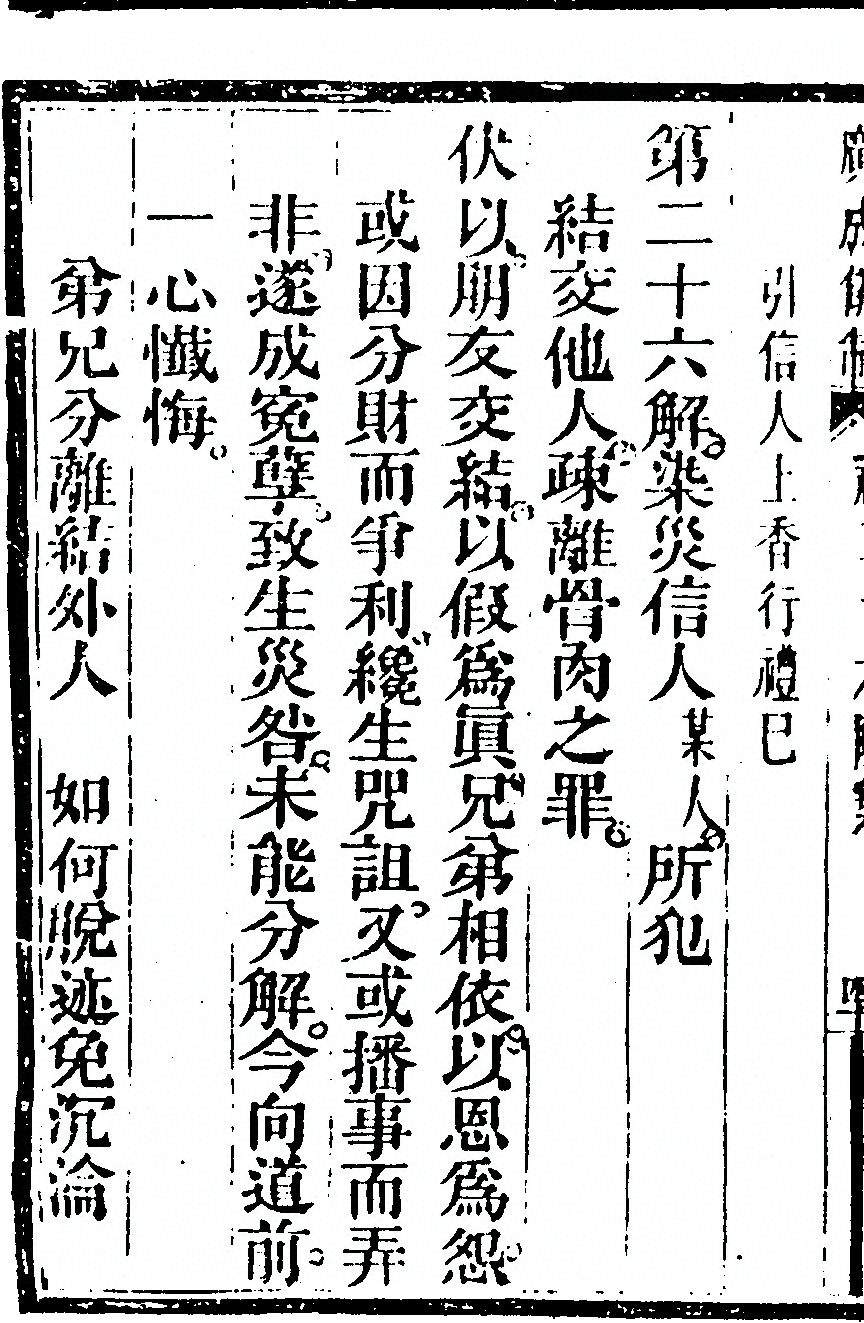 引信人上香行禮巳
第二十六解。染災信人某人。所犯
結交他人。疎離骨肉之罪。
伏以。朋友交結。以假爲眞。兄弟相依。以恩爲怨。
或因分財而爭利。纔生咒詛。又或播事而弄
非。遂成寃孽。致生災咎。未能分解。今向道前。
一心懺悔。
弟兄分離結外人　如何脫迹免沉淪